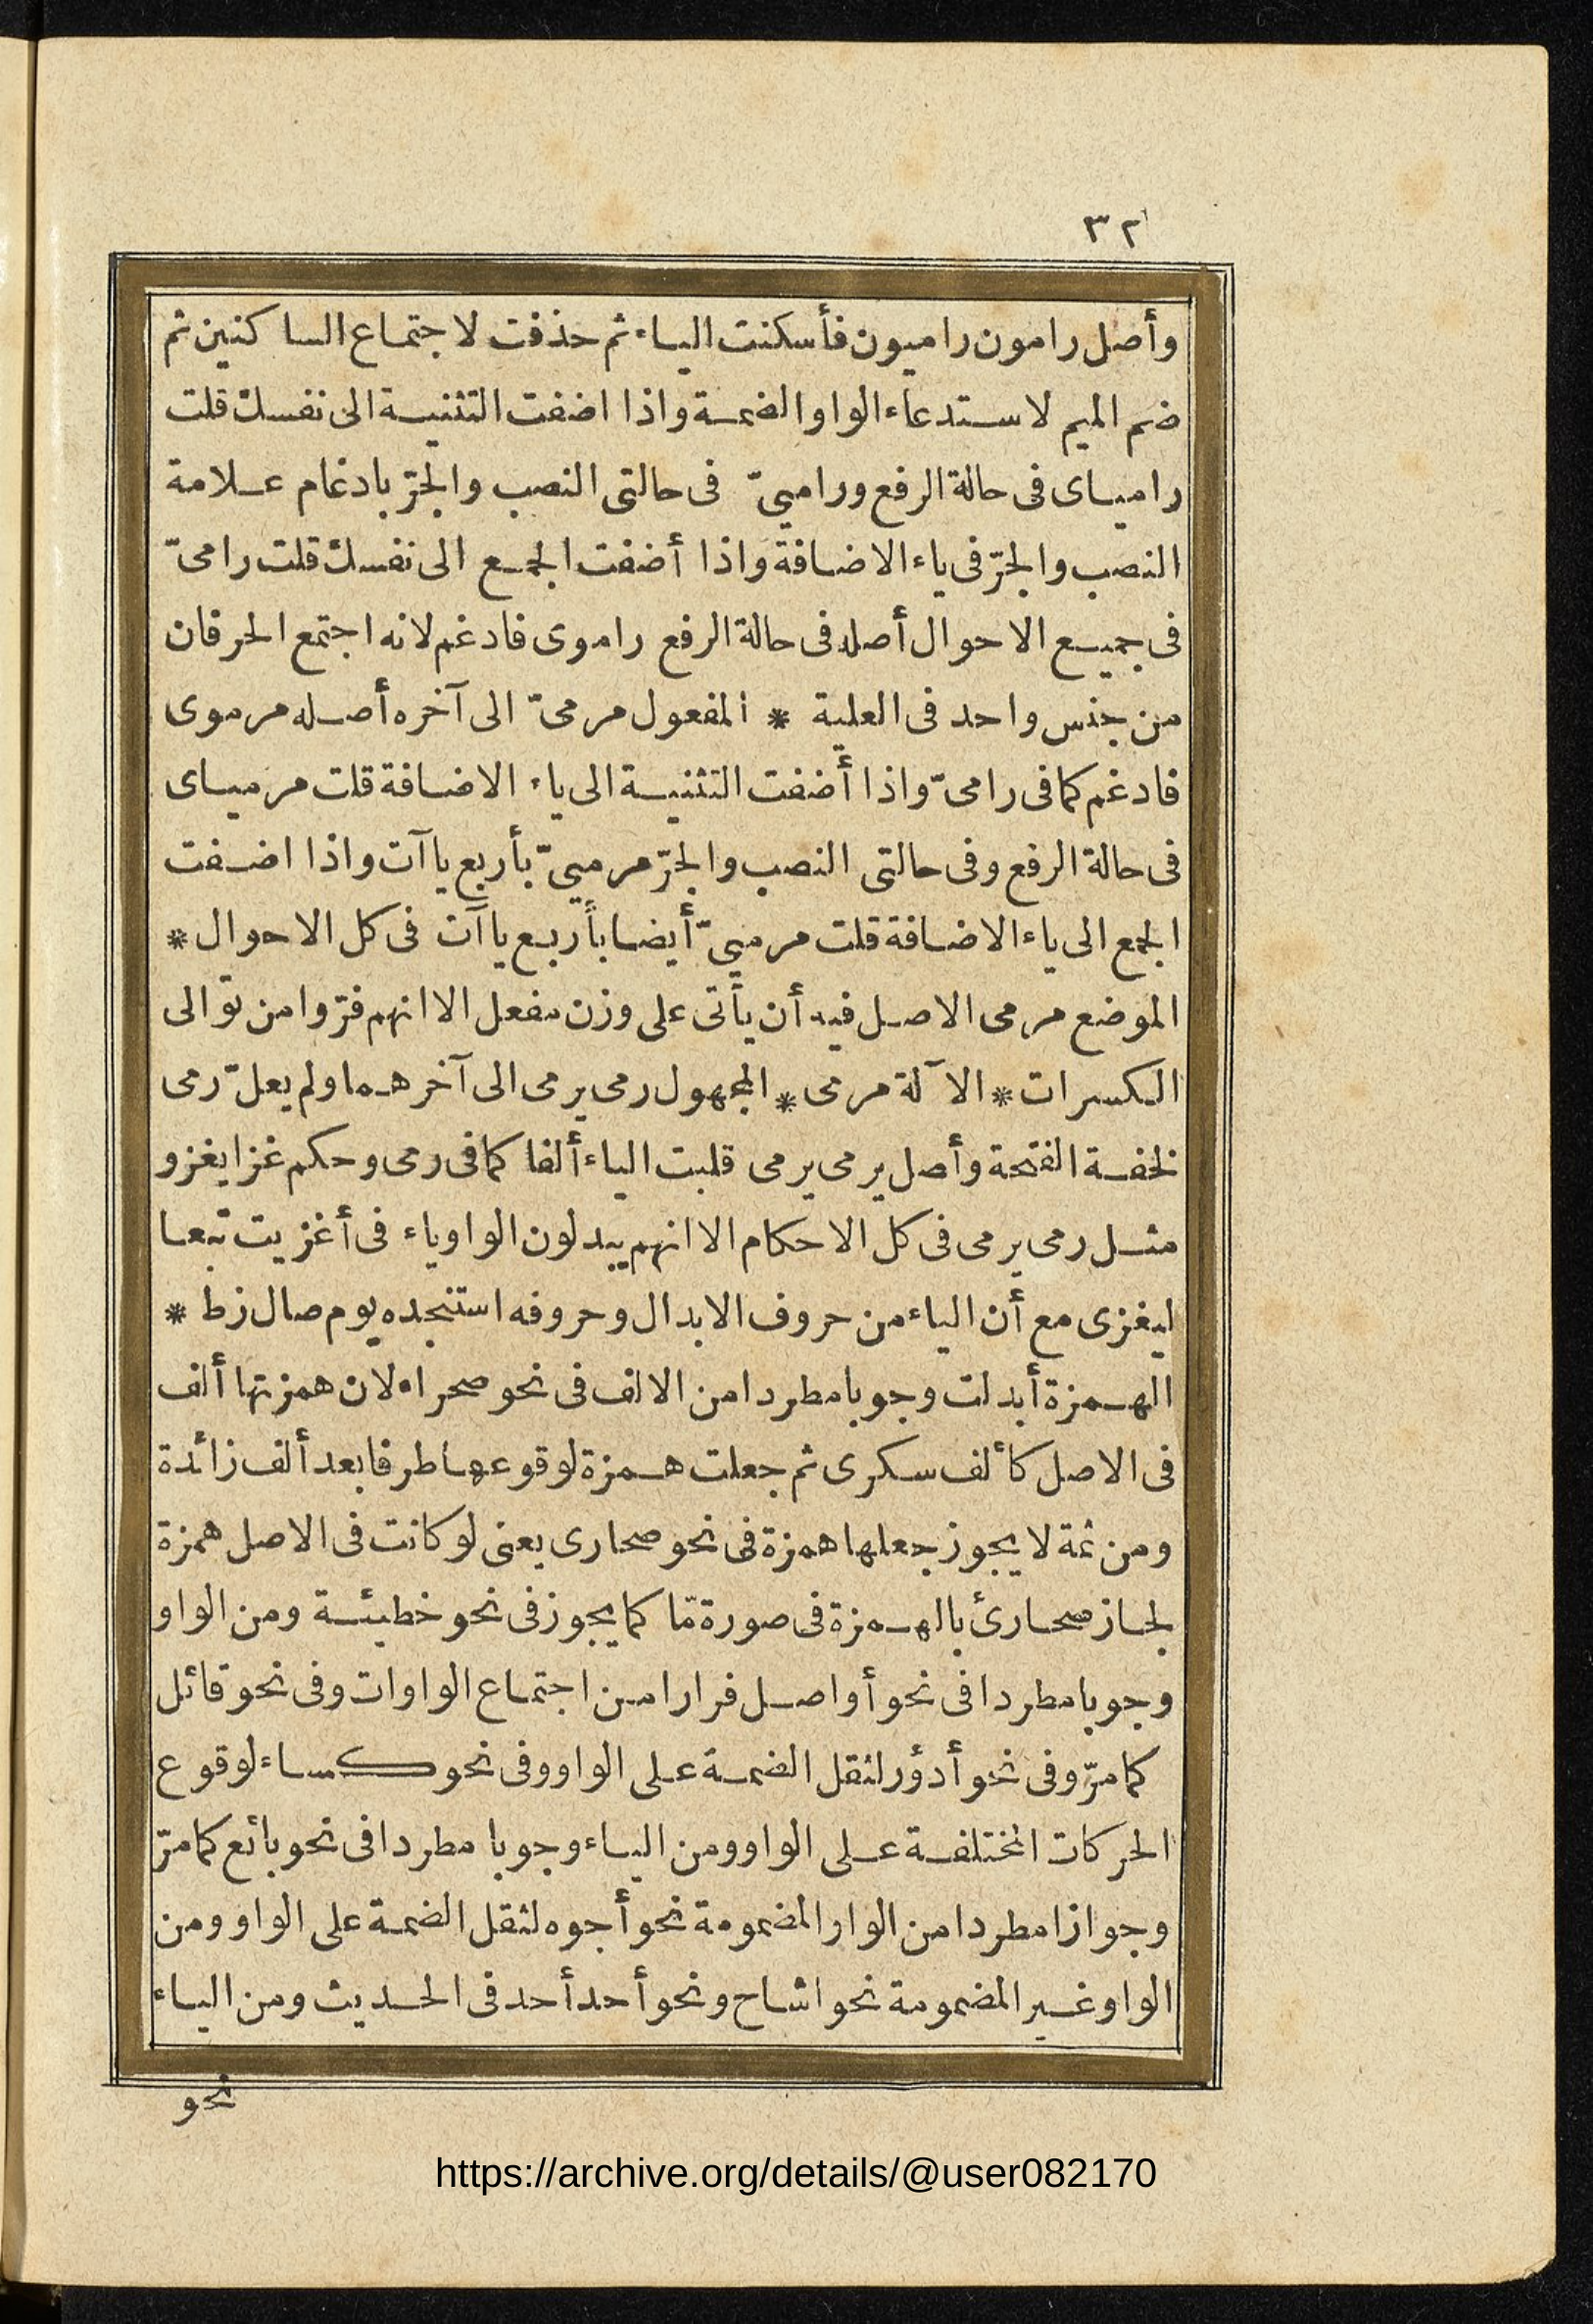 ٣٢
وأصل رامون راميون فأسكنت الياء ثم حذفت لاجتماع الساكنين ثم
ضم الميم لاستدعاء الواو الضمة واذا اضفت التثنية الى نفسك قلت
راميـاى فى حالة الرفع وراميىّ فى حالتى النصب والجرّ بادغام علامة
النصب والجرّ فى ياء الاضافة واذا أضفت الجمع الى نفسك قلت رامىّ
فى جميع الاحوال أصله فى حالة الرفع راموى فادغم لانه اجتمع الحرفان
من جنس واحد فى العلية * المفعول مرمىّ الى آخره أصله مرموى
فادغم كما فى رامىّ واذا أضفت التثنية الى ياء الاضافة قلت مرمياى
فى حالة الرفع وفى حالتى النصب والجرّ مرميىّ بأربع ياآت واذا اضفت
الجمع الى ياء الاضافة قلت مرميىّ أيضا بأربع ياآت فى كل الاحوال *
الموضع مرمى الاصل فيه أن يأتى على وزن مفعل الا انهم فرّوا من توالى
الكسرات * الآلة مرمى * المجهول رمى يرمى الى آخرهما ولم يعلّ رمى
لخفة الفتحة وأصل يرمى يرمى قلبت الياء ألفا كما فى رمى وحكم غزا يغزو
مثل رمى يرمى فى كل الاحكام الا انهم يبدلون الواو ياء فى أغزيت تبعا
ليغزى مع أن الياء من حروف الابدال وحروفه استنجده يوم صال زط *
الهمزة أبدلت وجوبا مطردا من الالف فى نحو صحراء لان همزتها ألف
فى الاصل كألف سكرى ثم جعلت همزة لوقوعها طرفا بعد ألف زائدة
ومن ثمة لا يجوز جعلها همزة فى نحو صحارى يعنى لو كانت فى الاصل همزة
لجاز صحارئ بالهمزة فى صورة مّا كما يجوز فى نحو خطيئة ومن الواو
وجوبا مطردا فى نحو أواصل فرارا من اجتماع الواوات وفى نحو قائل
كما مرّ وفى نحو أدؤر لثقل الضمة على الواو وفى نحو كساء لوقوع
الحركات المختلفة على الواو ومن الياء وجوبا مطردا فى نحو بائع كما مرّ
وجوازا مطردا من الواو المضمومة نحو أجوه لثقل الضمة على الواو ومن
الواو غير المضمومة نحو اشاح ونحو أحد أحد فى الحديث ومن الياء
نحو
https://archive.org/details/@user082170